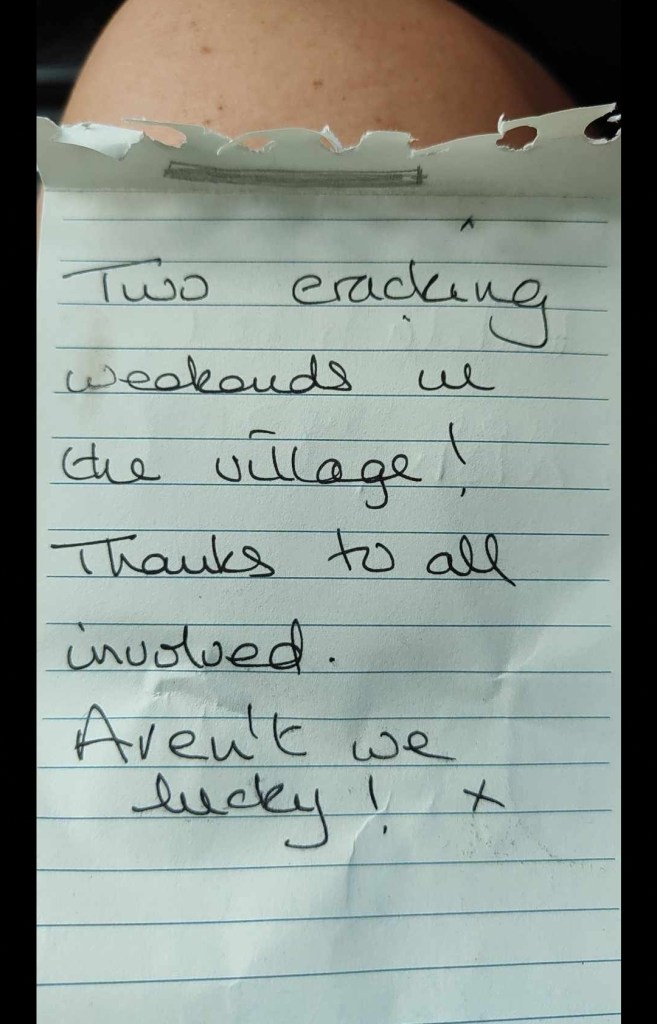 Two cracking
weekends in
the village!
Thanks to all
involved.
Aren't we
lucky! x